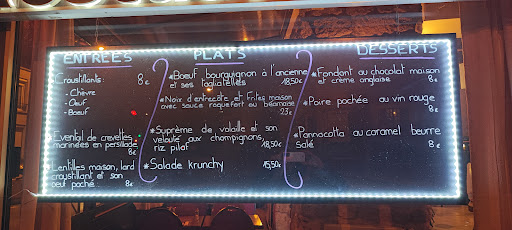 ENTRÉES
Croustillants : 8€
- Chèvre
- Oeuf
- Boeuf
Eventail de crevettes
marinées en persillade
8€
Lentilles maison, lard
croustillant et son
oeuf poché 8€
PLATS
*Boeuf bourguignon à l'ancienne
et ses tagliatelles 18,50€
*Noix d'entrecôte et Frites maison
avec sauce roquefort ou béarnaise
23€
*Suprême de volaille et son
velouté aux champignons,
riz pilaf 18,50€
*Salade krunchy 15,50€
DESSERTS
*Fondant au chocolat maison
et crème anglaise 8€
*Poire pochée au vin rouge
8€
*Pannacotta au caramel beurre
salé 8€